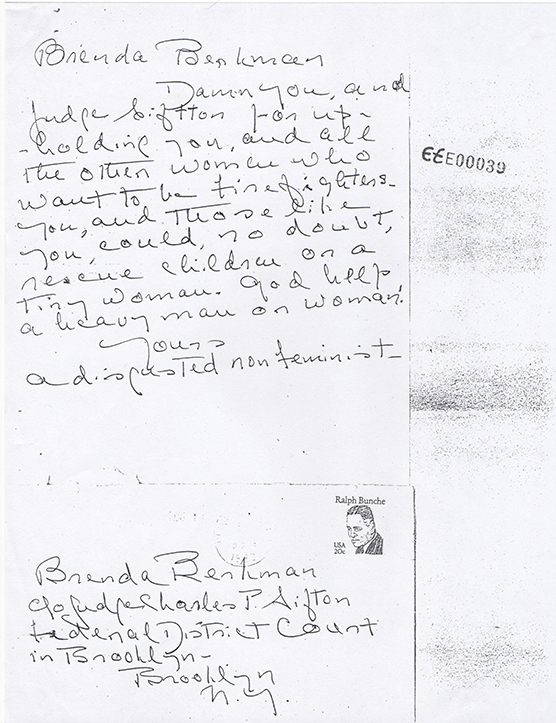 Brenda Berkman
Damn you, and
Judge Sifton for up-
-holding you, and all
the other women who
want to be firefighters-
you, and those like
you, could, no doubt,
rescue children or a
tiny woman. God help,
a heavy man or woman.
Yours
a disgusted nonfeminist-
EEE00039
Ralph Bunche
USA
20c
Brenda Berkman
c/o Judge Charles P. Sifton
Federal District Court
in Brooklyn-
Brooklyn
N.Y.